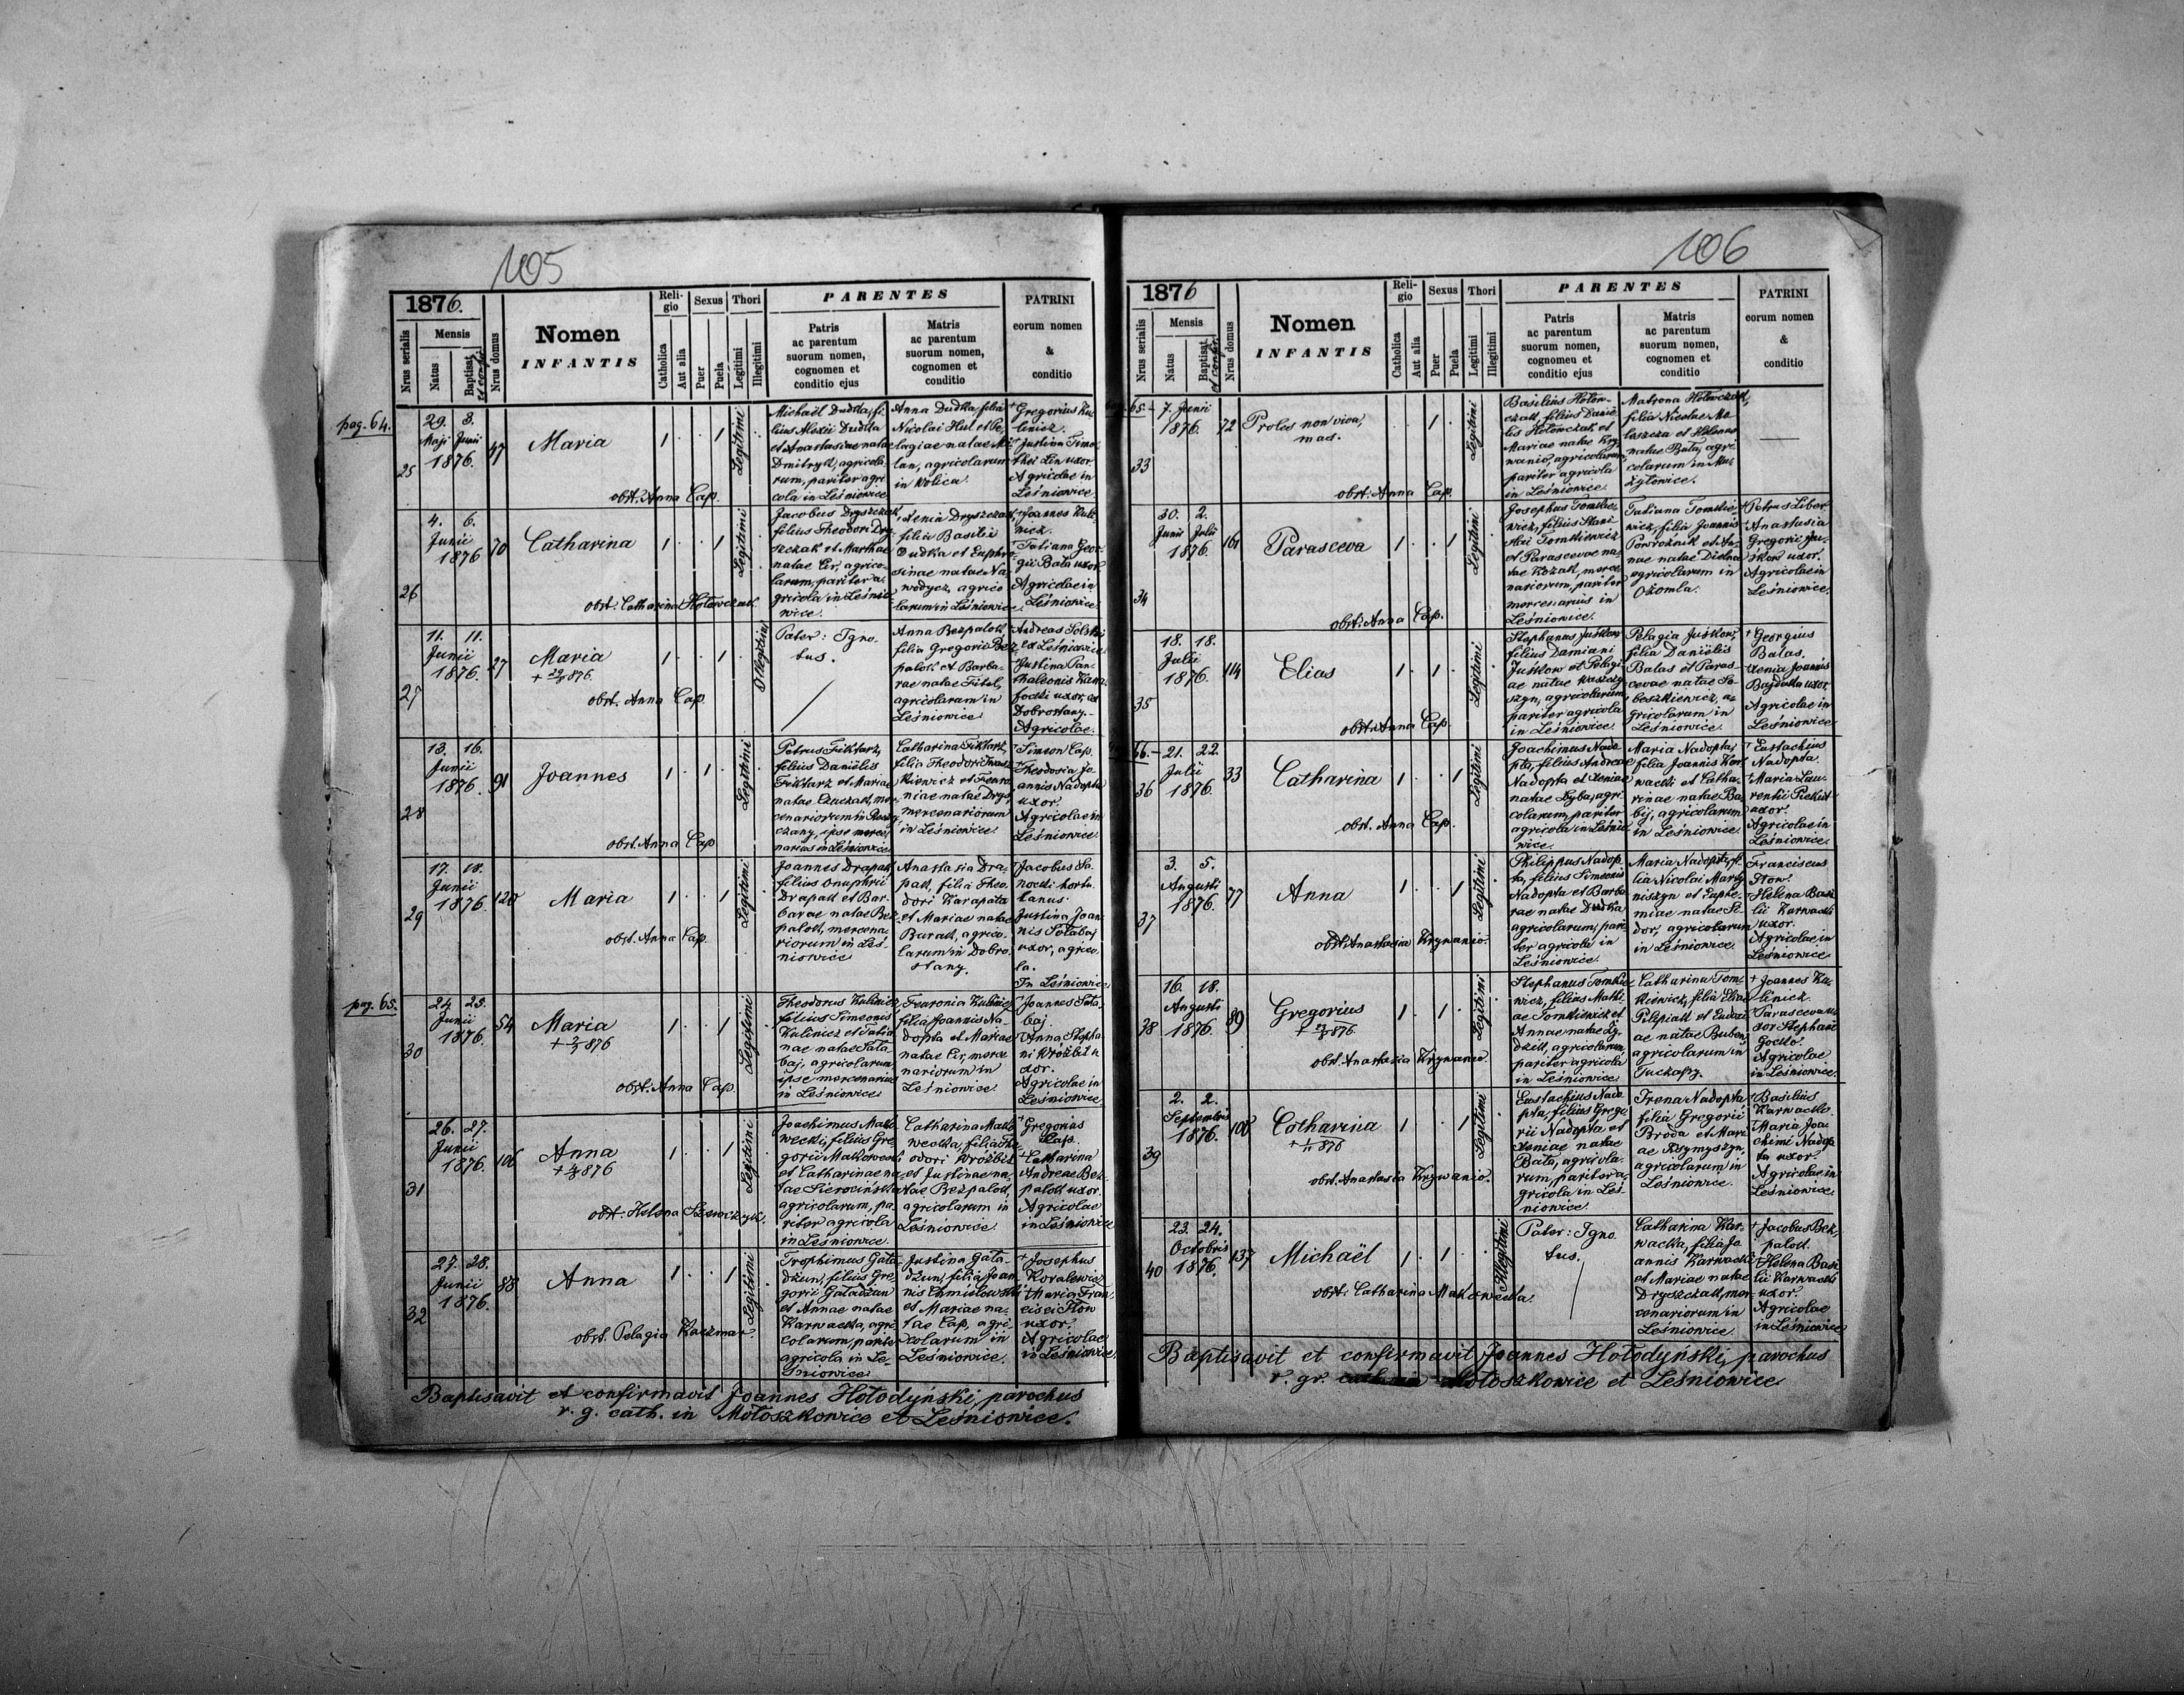 105
1876.
Nrus serialis
Mensis
Natus
Baptisat
et confir.
Nrus domus
Nomen
INFANTIS
Reli-
gio
Catholica
Aut alia
Sexus
Puer
Puela
Thori
Legitimi
Illegitimi
PARENTES
Patris
ac parentum
suorum nomen,
cognomen et
conditio ejus
Matris
ac parentum
suorum nomen,
cognomen et
conditio
PATRINI
eorum nomen
&
conditio
pag. 64.
25
29. 3.
Maji Junii
1876.
47
Maria
obst. Anna Cap.
Legitimi
Michaël Dudka, fi-
lius Alexii Dudka
et Anastasiae natae
Dmitryk, agricola-
rum, pariter agri
cola in Leśniowice
Anna Dudka, filia
Nicolai Hul et Pe-
lagiae natae
agricolarum
in Wolica.
Gregorius Ku-
linicz.
Justina Timo-
thei Lin uxor.
Agricolae in
Leśniowice.
26
4. 6.
Junii
1876
70
Catharina
obst. Catharina Hołowczak.
Legitimi
Jacobus Dryszczak,
filius Theodori Dry-
szczak et Marthae
natae Cir, agrico-
larum, pariter a-
gricola in Leśnio-
wice.
Xenia Dryszczak,
filia Basilii
Dudka et Euphro-
sinae natae Na-
wodycz, agrico
larum in Leśniowice.
Joannes Kuli-
nicz.
Tatiana Geor-
gii Bała uxor.
Agricolae in
Leśniowice.
27
11. 11.
Junii
1876.
27
Maria
obst. Anna Cap.
Illegitimi
Pater: Igno-
tus.
Anna Bezpalok
filia Gregorii Bez-
palok et Barba-
rae natae Fitel,
agricolarum in
Leśniowice.
Andreas Solski
ex Leśniowice
Justina Pan-
thaleonis
uxor, ex
Dobrostany.
Agricolae.
28
13. 16.
Junii
1876.
91
Joannes
obst. Anna Cap
Legitimi
Petrus Fiktarz,
filius Daniëlis
Fiktarz et Mariae
natae mer-
cenariorum in
ipse merce-
narius in Leśniowice
Catharina Fiktarz,
filia Theodori
kiewicz et Fevro
niae natae Drys,
mercenariorum
in Leśniowice.
Simeon Cap.
Theodosia Jo-
annis Nadopta
uxor.
Agricolae in
Leśniowice.
29
17. 18.
Junii
1876.
120
Maria
obst. Anna Cap.
Legitimi
Joannes Drapak
filius Onuphrii
Drapak et Bar-
barae natae Bez-
palok, mercena-
riorum in Leś-
niowice
Anastasia Dra-
pak, filia Theo-
dori Karapata
et Mariae natae
Burak, agrico-
larum in Dobro-
stany.
Jacobus Sa-
nocki hortu-
lanus.
Justina Joan-
nis Sałabaj
uxor, agrico-
la.
In Leśniowice
pag. 65.
30
24. 25.
Junii
1876.
54
Maria
obst. Anna Cap.
Legitimi
Theodorus Kulinicz,
filius Simeonis
Kulinicz et Tatia-
nae natae Sała-
baj, agricolarum
ipse mercenarius
in Leśniowice
Fevronia Kulinicz
filia Joannis Na-
dopta et Mariae
natae Cir, merce
nariorum in
Leśniowice.
Joannes Sała-
baj
Anna Stepha-
ni Wróżbit u-
xor.
Agricolae in
Leśniowice.
31
26. 27.
Junii
1876.
106
Anna
obst. Helena Szewczyk.
Legitimi
Joachimus Mako-
wecki, filius Gre-
gorii Makowecki
et Catharinae na-
tae Sierocińska
agricolarum, pa-
riter agricola
in Leśniowice.
Catharina Mako-
wecka, filia The-
odori Wróżbit
et Justinae na-
tae Bezpalok,
agricolarum in
Leśniowice.
Gregorius
Cap.
Catharina
Andreae Bez-
palok uxor.
Agricolae
in Leśniowice
32
27. 28.
Junii
1876.
88
Anna
obst. Pelagia Kaczmar.
Legitimi
Trophimus Gała-
dżun, filius Gre-
gorii Gaładżun
et Annae natae
Karwacka, agri-
colarum, pariter
agricola in Le-
śniowice
Justina Gała-
dżun, filia Joan-
nis Chmielowski
et Mariae na-
tae Cap, agri-
colarum in
Leśniowice.
Josephus
Kovalewicz
Maria Fran-
cisci Stow
uxor.
Agricolae
in Leśniowice.
Baptisavit et confirmavit Joannes Hołodyński, parochus
r. g. cath. in Mołoszkowice et Leśniowice.
106
1876
Nrus serialis
Mensis
Natus
Baptisat
et confir.
Nrus domus
Nomen
INFANTIS
Reli-
gio
Catholica
Aut alia
Sexus
Puer
Puela
Thori
Legitimi
Illegitimi
PARENTES
Patris
ac parentum
suorum nomen,
cognomen et
conditio ejus
Matris
ac parentum
suorum nomen,
cognomen et
conditio
PATRINI
eorum nomen
&
conditio
65.
33
7. Junii
1876.
72
Proles non viva,
mas.
obst. Anna Cap.
Legitimi
Basilius Hołow-
czak, filius Danie-
lis Hołowczak et
Mariae natae Kry-
wanio, agricolarum,
pariter agricola
in Leśniowice.
Matrona Hołowczak,
filia Nicolae Ma-
laszcza et Helenae
natae Bała, agri-
colarum in Mu-
żyłowice.
34
30. 2.
Junii Julii
1876.
161
Parasceva
obst. Anna Cap.
Legitimi
Josephus Tomkie-
wicz, filius Stani-
slai Tomkiewicz
et Parascevae na-
tae Kozak, merce
nariorum, pariter
mercenarius in
Leśniowice.
Tatiana Tomkie-
wicz, filia Joannis
Powroźnik et An-
nae natae Dielna
agricolarum in
Ożomla.
Petrus Liber
Anastasia
Gregorii Ju-
śkow uxor.
Agricolae in
Leśniowice.
35
18. 18.
Julii
1876.
114
Elias
obst. Anna Cap.
Legitimi
Stephanus Juśkow,
filius Damiani
Juśkow et Pelagi-
ae natae
agricolarum,
pariter agricola
in Leśniowice.
Pelagia Juśkow,
filia Daniëlis
Balas et Paras-
cevae natae So-
beszkiewicz, a-
gricolarum in
Leśniowice.
Georgius
Balas.
Xenia Joannis
Bajdała uxor.
Agricolae in
Leśniowice.
66.
36
21. 22.
Julii
1876.
33
Catharina
obst. Anna Cap.
Legitimi
Joachimus Nado-
pta, filius Andreae
Nadopta et Xeniae
natae Dyba, agri-
colarum, pariter
agricola in Leśnio-
wice.
Maria Nadopta,
filia Joannis Kor-
wacki et Catha-
rinae natae Ba-
bij, agricolarum
in Leśniowice.
Eustachius
Nadopta.
Maria Lau-
rentii Piekut
uxor.
Agricolae in
Leśniowice.
37
3. 5.
Augusti
1876.
77
Anna
obst. Anastasia Krywanio.
Legitimi
Philippus Nadop-
ta, filius Simeonis
Nadopta et Barba-
rae natae Dudka
agricolarum, pari-
ter agricola in
Leśniowice.
Maria Nadopta, fi-
lia Nicolai Marty-
niszyn et Euphe-
miae natae Si-
dor, agricolarum
in Leśniowice.
Franciscus
Stow.
Helena Basi-
lii Karwacki
uxor.
Agricolae in
Leśniowice.
38
16. 18.
Augusti
1876.
89
Gregorius
obst. Anastasia Krywanio.
Legitimi
Stephanus Tomkie-
wicz, filius Mathi-
ae Tomkiewicz et
Annae natae Ży-
dzik, agricolarum,
pariter agricola
in Leśniowice.
Catharina Tom-
kiewicz, filia Eliae
Pilipiak et Eudoxi-
ae natae Buben,
agricolarum in
Tuczapy.
Joannes Ku-
linicz.
Parasceva u-
xor Stephani
Gocko.
Agricolae
in Leśniowice.
39
2. 2.
Septembris
1876.
108
Catharina
obst. Anastasia Krywanio.
Legitimi
Eustachius Nado-
pta, filius Grego-
rii Nadopta et
Xeniae natae
Bała, agricola-
rum, pariter a-
gricola in Leś-
niowice.
Irena Nadopta
filia Gregorii
Broda et Mari-
ae
agricolarum in
Leśniowice.
Basilius
Karwacki.
Maria Joa-
chimi Nadop-
ta uxor.
Agricolae in
Leśniowice.
40
23. 24.
Octobris
1876.
137
Michaël
obst. Catharina Makowecka.
Illegitimi
Pater: Igno-
tus.
Catharina Kar-
wacka, filia Jo-
annis Karwacki
et Mariae natae
Dryszczak, mer-
cenariorum in
Leśniowice.
Jacobus Bez-
palok.
Helena Basi-
lii Karwacki
uxor.
Agricolae
in Leśniowice
Baptisavit et confirmavit Joannes Hołodyński, parochus
r. gr. Mołoszkowice et Leśniowice.